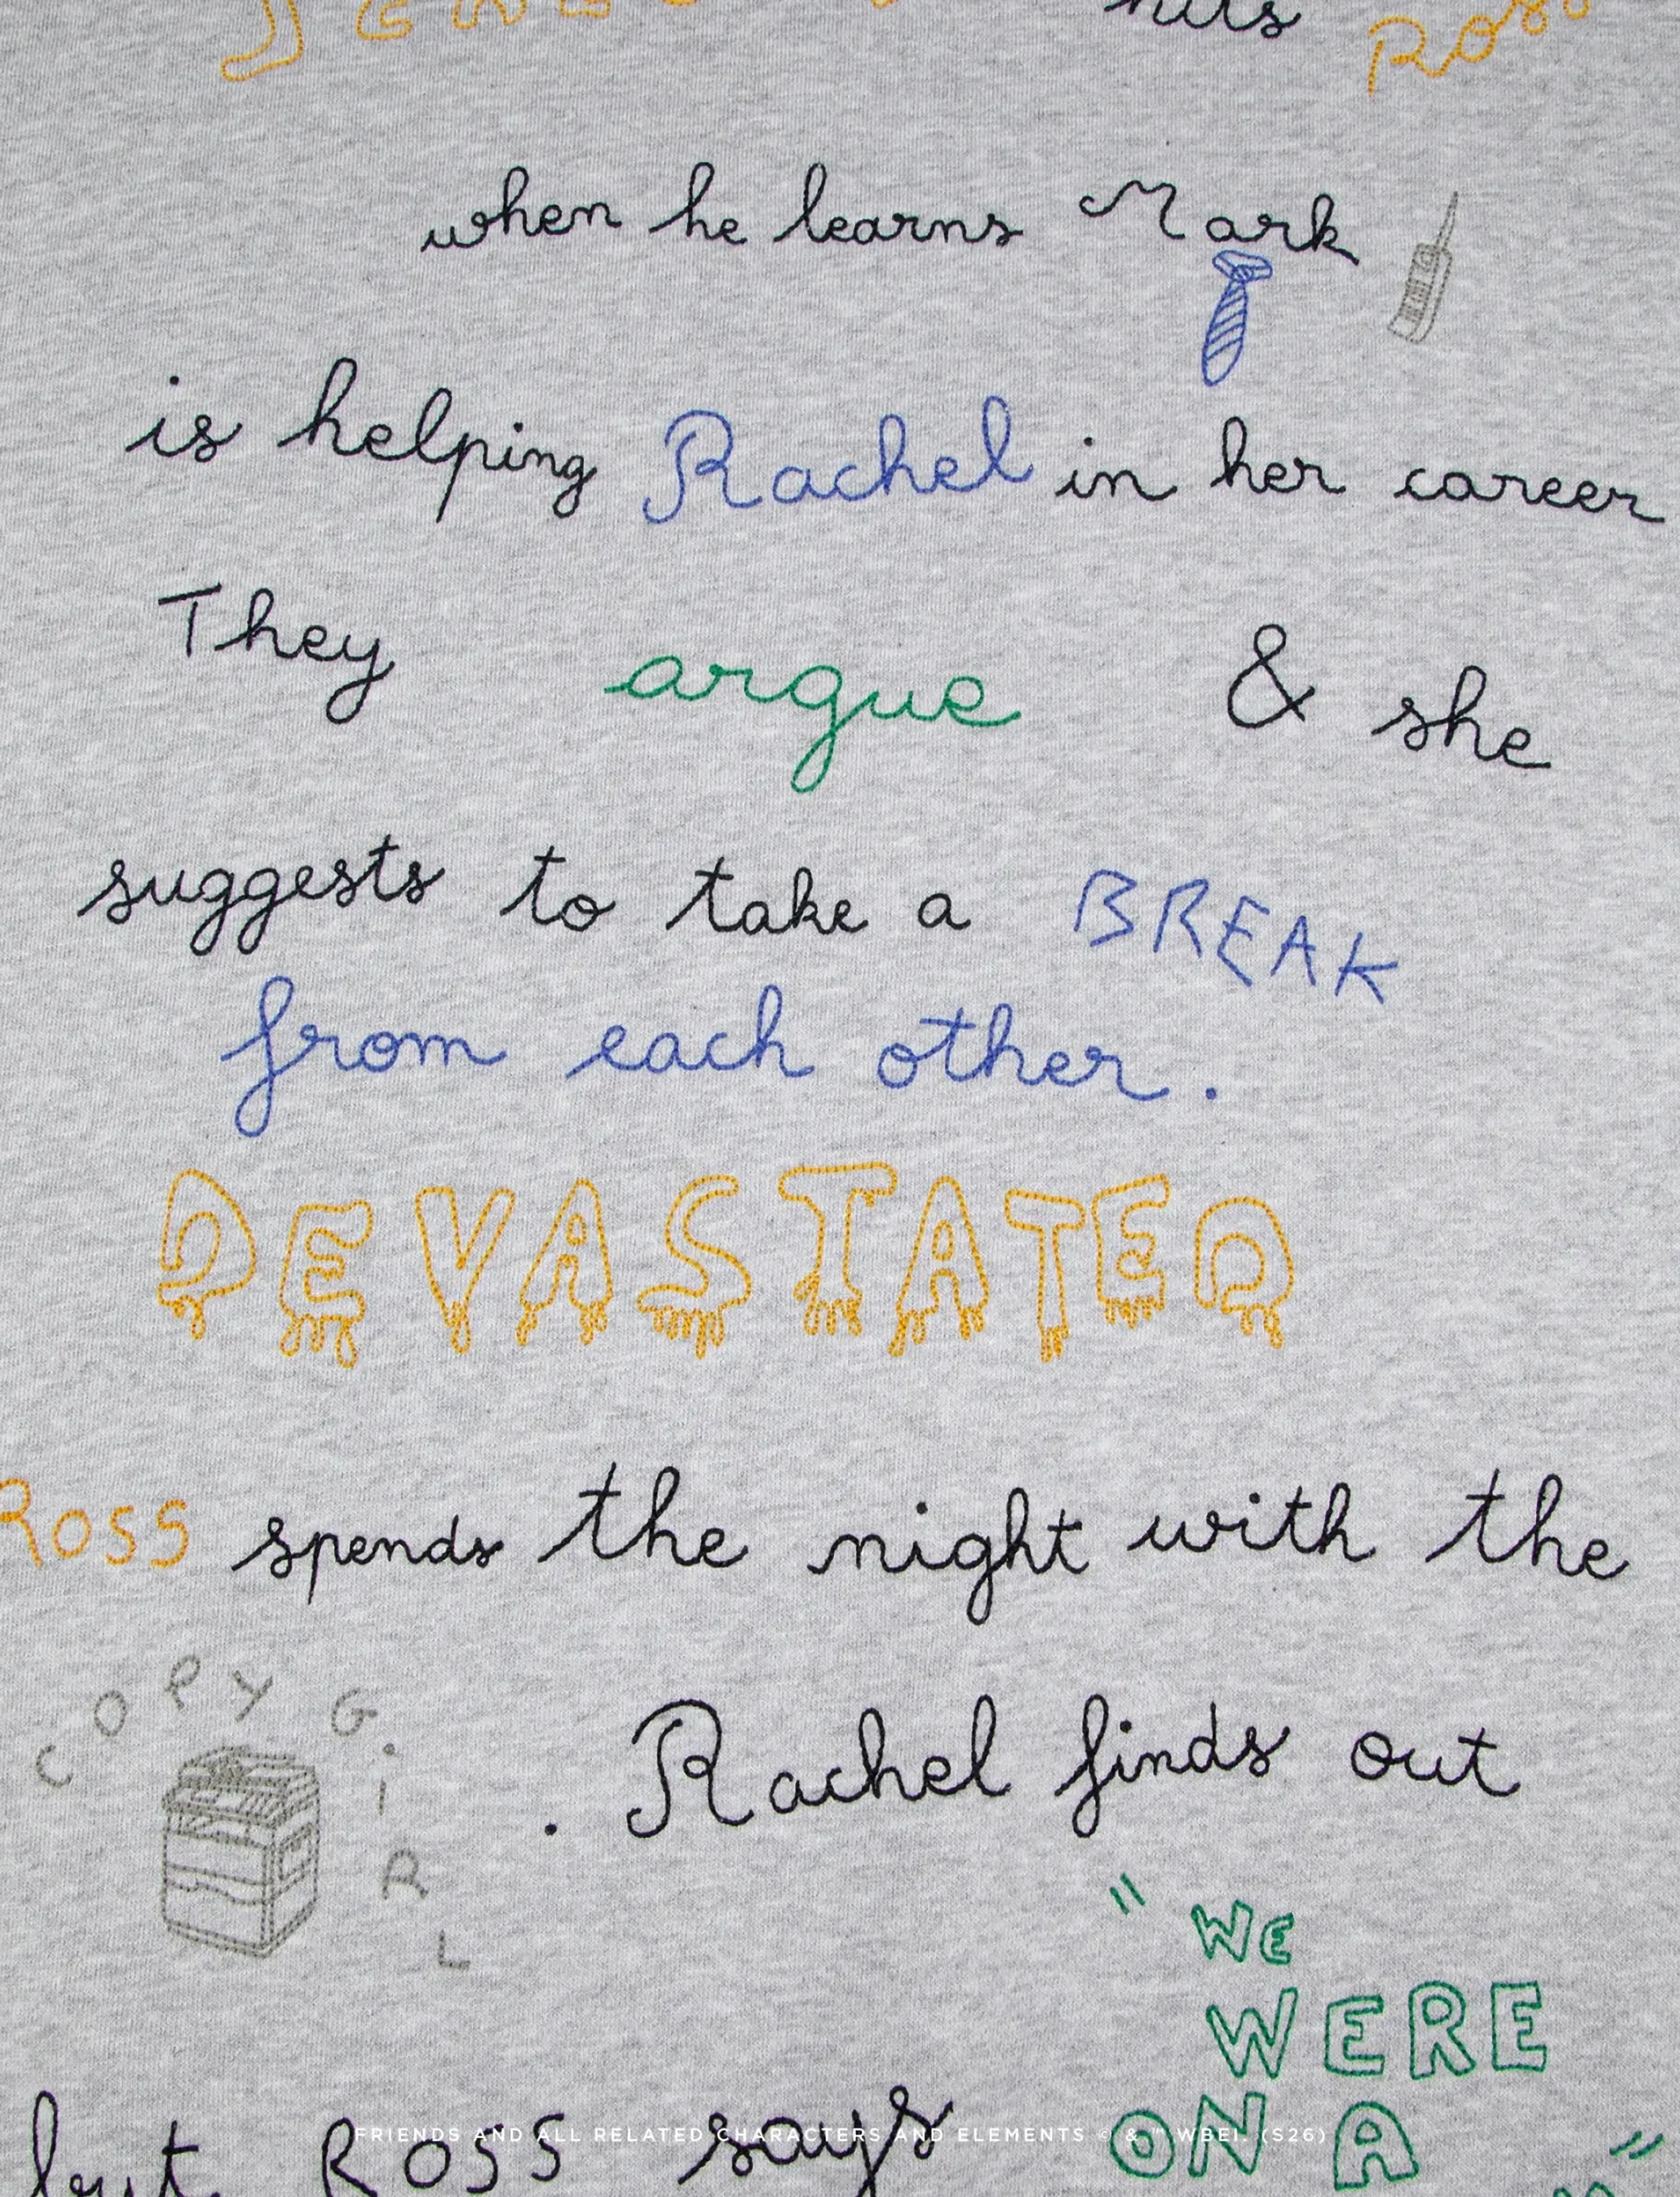 hits
when he learns Mark
is helping Rachel in her career
They argue & she
suggests to take a BREAK
from each other.
DEVASTATED
ROSS spends the night with the
COPY GiRL . Rachel finds out
" WE
WERE
but ROSS says ON A "
FRIENDS AND ALL RELATED CHARACTERS AND ELEMENTS © & ™ WBEI. (S26)